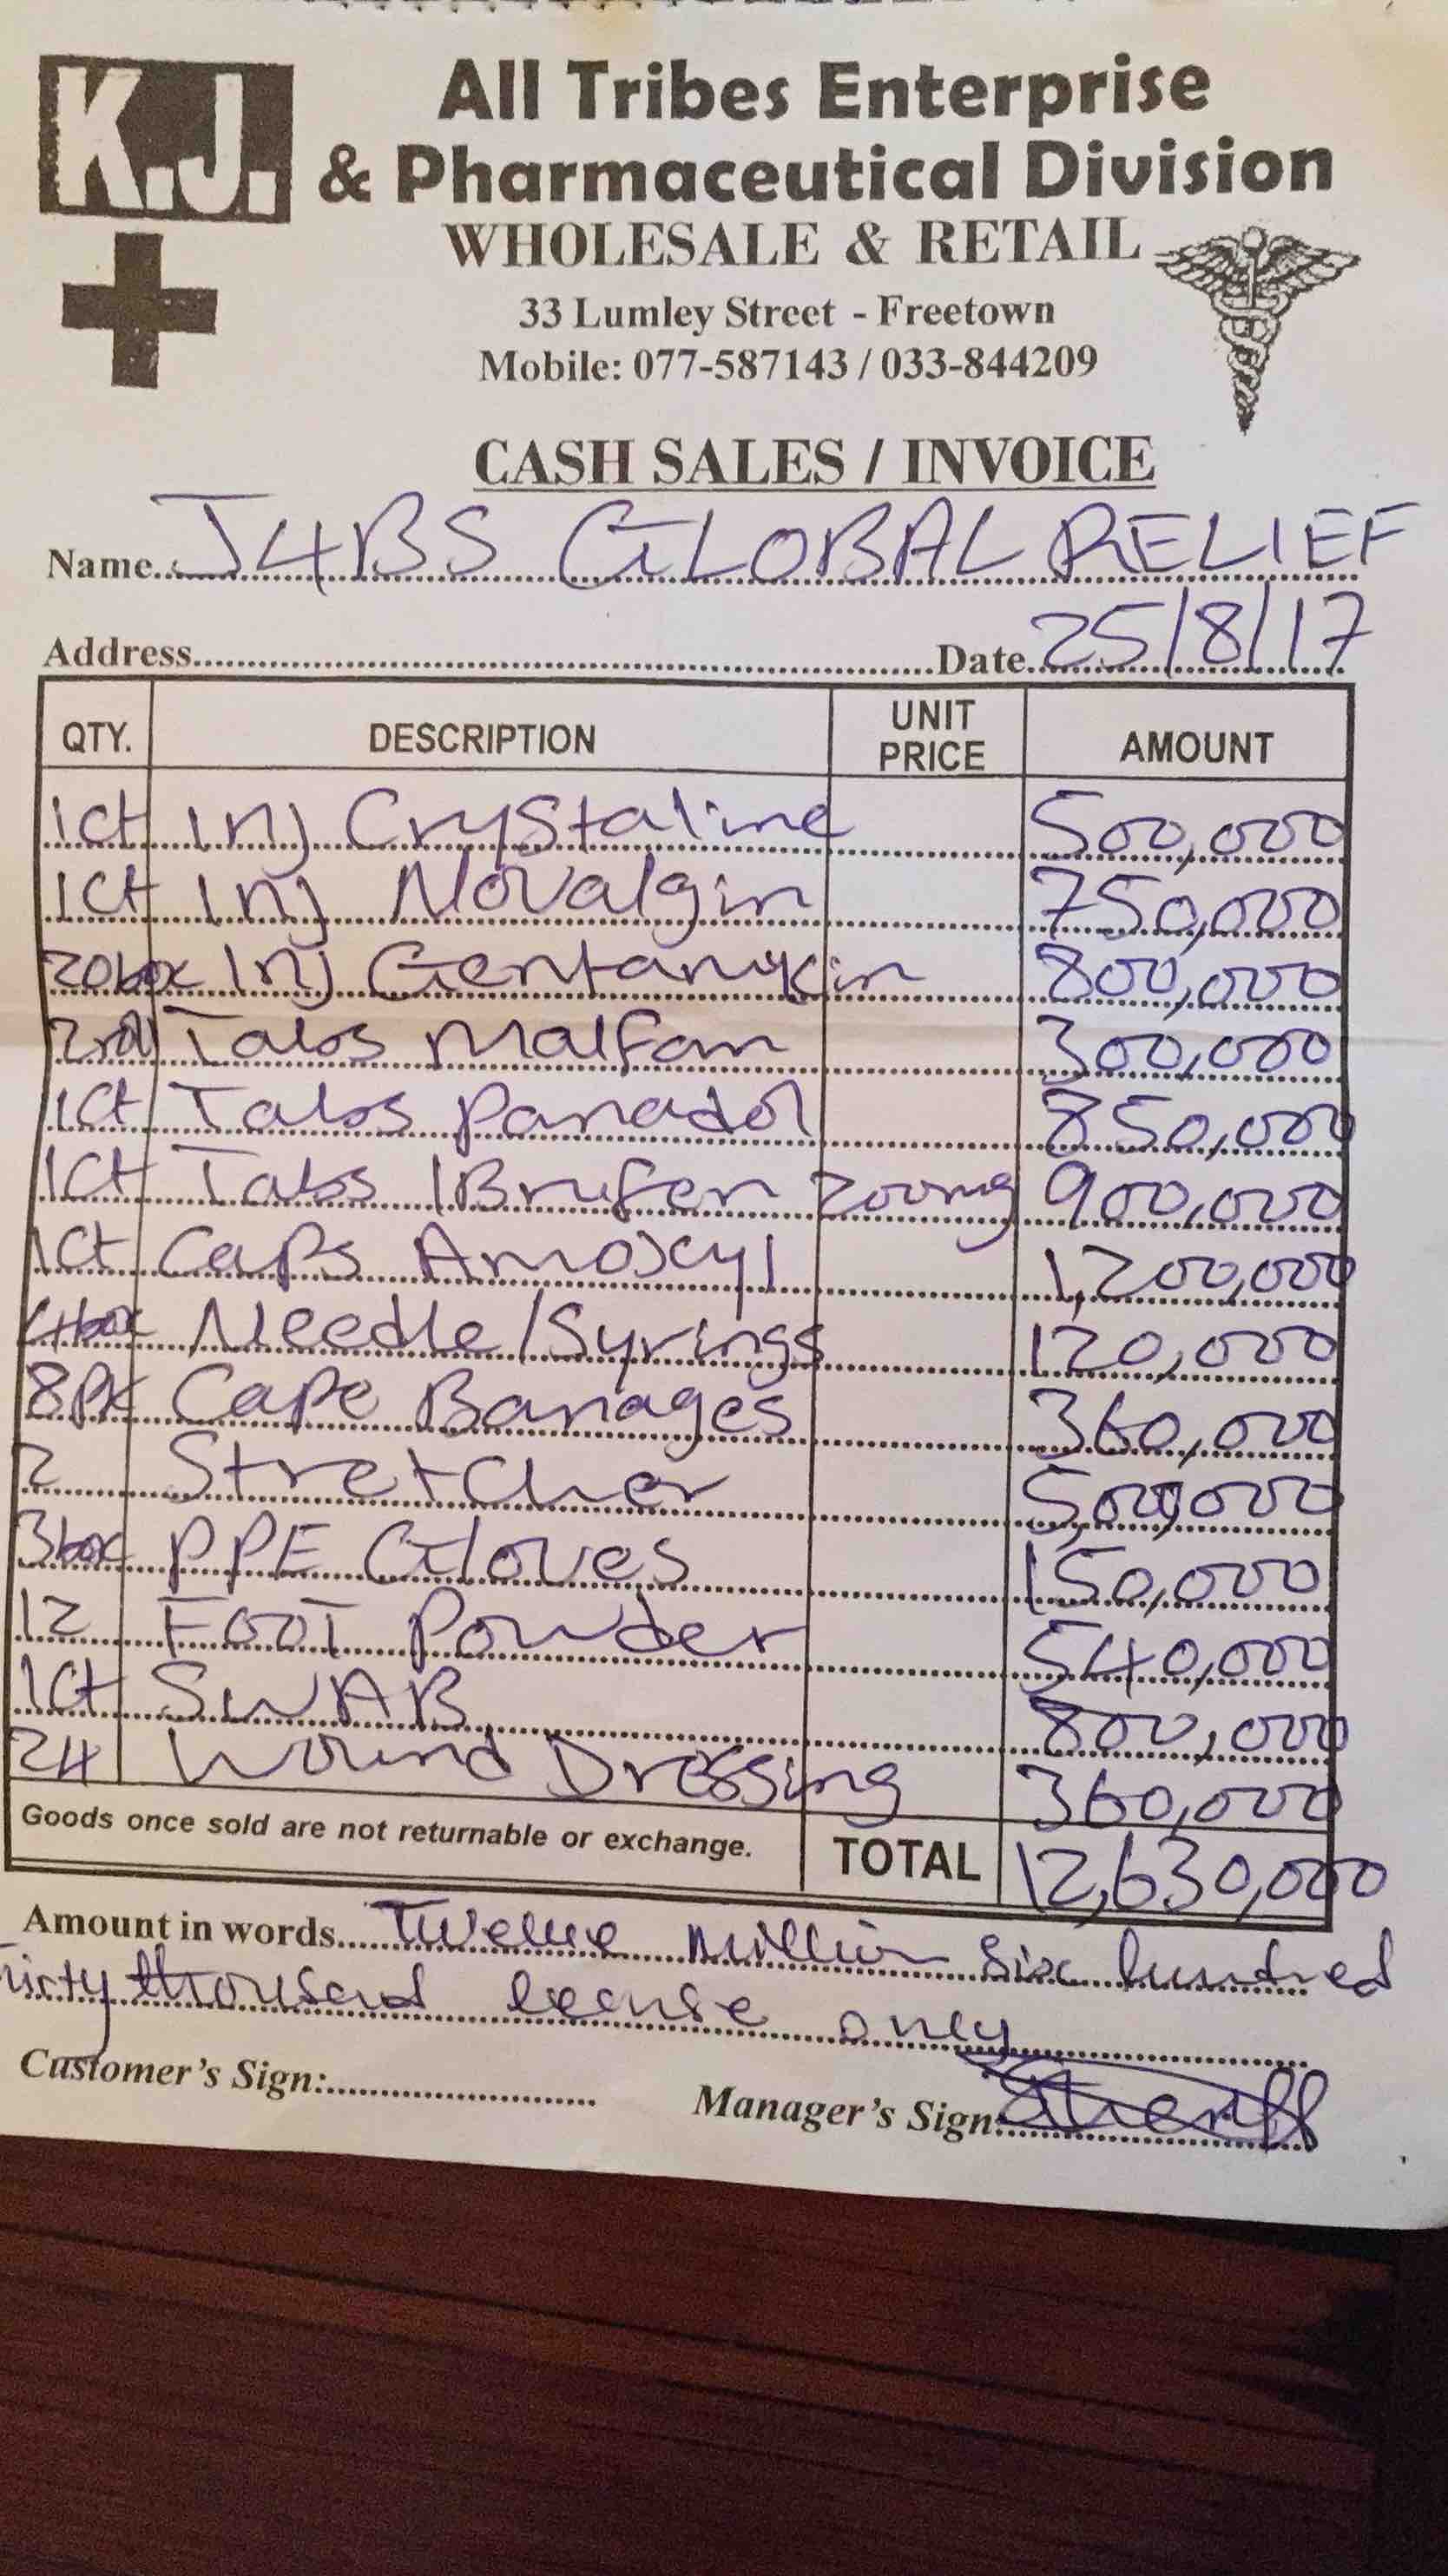 K.J. All Tribes Enterprise
& Pharmaceutical Division
WHOLESALE & RETAIL
33 Lumley Street - Freetown
Mobile: 077-587143 / 033-844209
CASH SALES / INVOICE
Name J4BS GLOBAL RELIEF
Address Date 25/8/17
QTY. DESCRIPTION UNIT PRICE AMOUNT
1ct Inj Crystaline 500,000
1ct Inj Novalgin 750,000
20box Inj Gentamycin 800,000
Tabs Malfan 300,000
1ct Tabs Panadol 850,000
1ct Tabs IBrufen 200mg 900,000
1ct Caps Amoxyl 1,200,000
4box Needle/Syrings 120,000
8PK Cape Banages 360,000
2 Stretcher 500,000
3box PPE Gloves 150,000
12 Foot Powder 540,000
1ct SWAB 800,000
24 Wound Dressing 360,000
Goods once sold are not returnable or exchange. TOTAL 12,630,000
Amount in words Twelve Million Six hundred
thousand only
Customer's Sign: Manager's Sign: